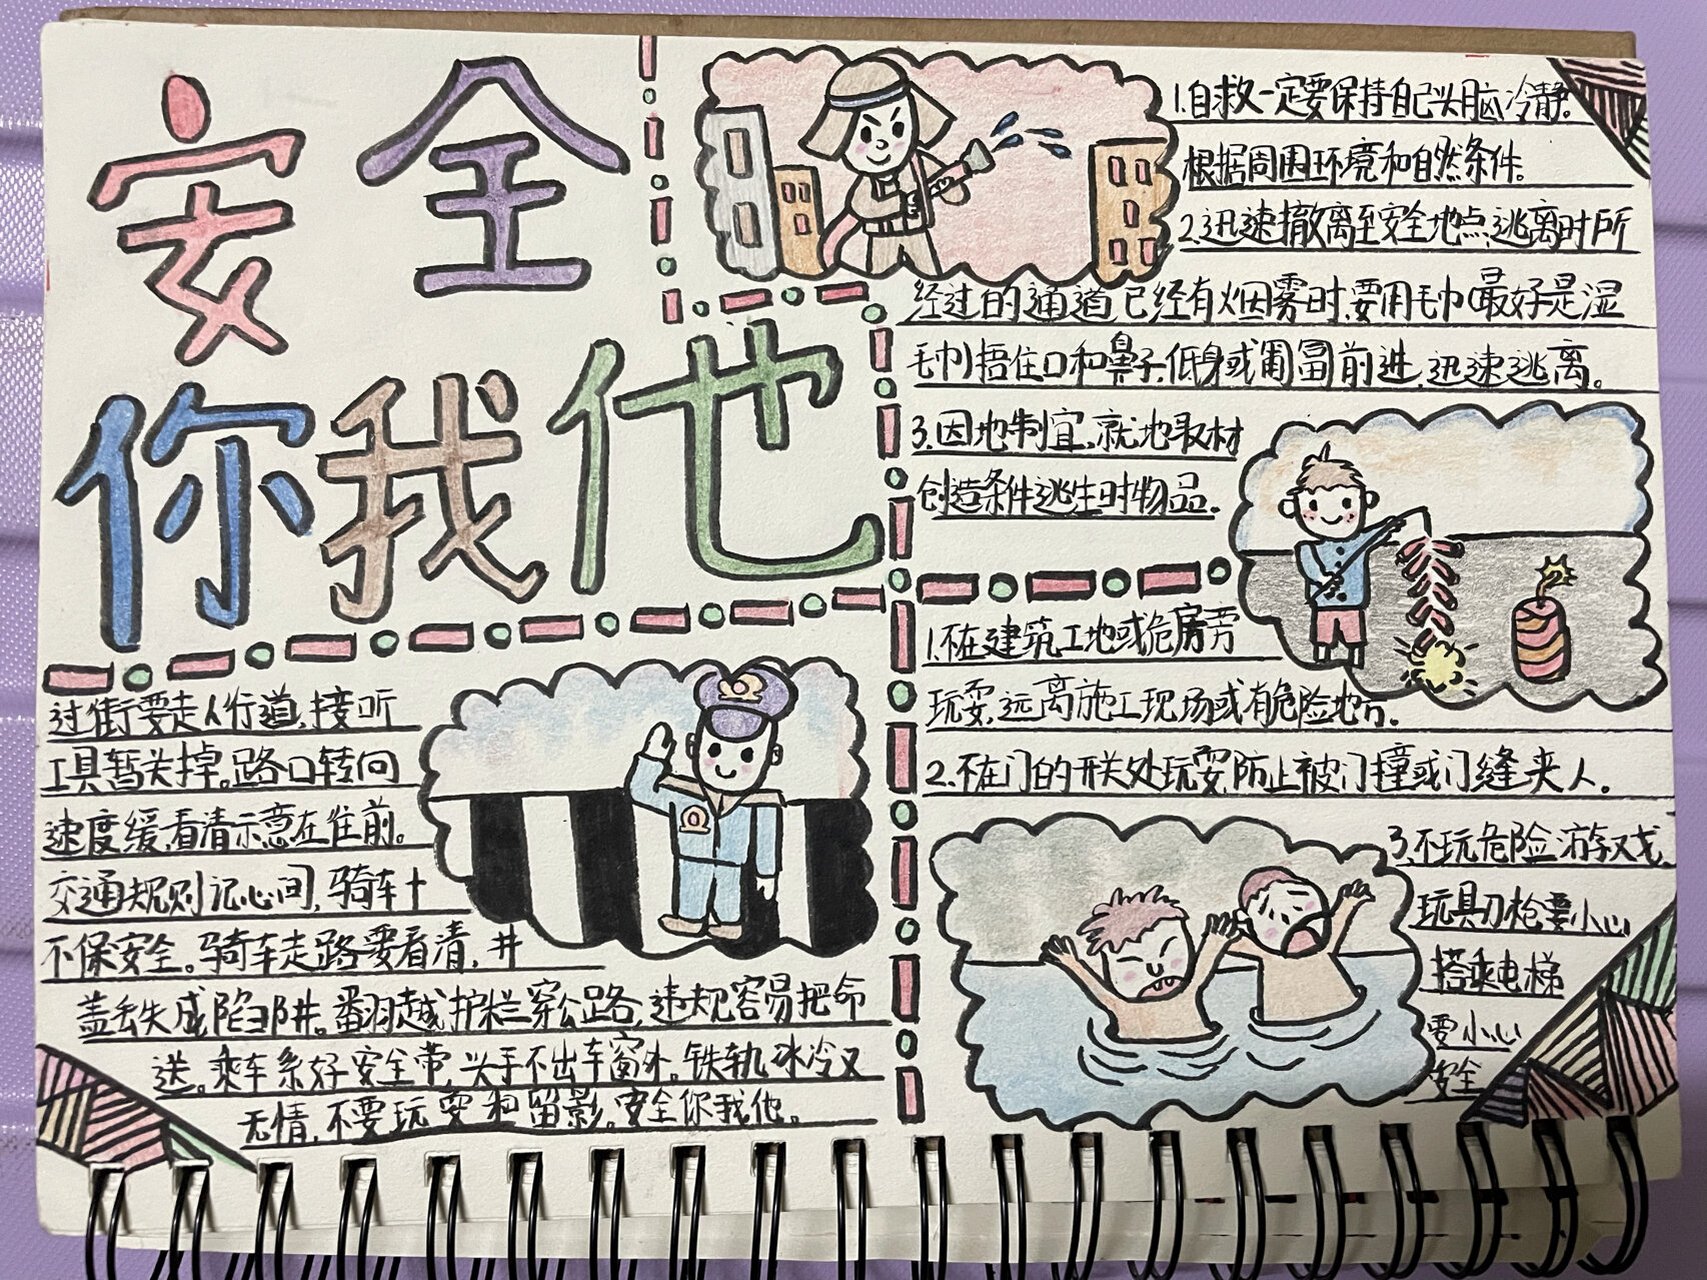 安全
你我他
1.自救一定要保持自己头脑冷静。
根据周围环境和自然条件。
2.迅速撤离至安全地点,逃离时所
经过的通道已经有烟雾时,要用毛巾最好是湿
毛巾捂住口和鼻子,低身或匍匐前进,迅速逃离。
3.因地制宜,就地取材
创造条件逃生时物品。
1.不在建筑工地或危房旁
玩耍,远离施工现场或有危险地方。
2.不在门的开关处玩耍,防止被门撞或门缝夹人。
3.不玩危险游戏,
玩具刀枪要小心
搭乘电梯
要小心
安全
过街要走人行道,接听
工具暂关掉。路口转向
速度缓,看清示意在往前。
交通规则记心间,骑车十
不保安全。骑车走路要看清,井
盖丢失成陷阱。翻越护栏穿公路,违规容易把命
送。乘车系好安全带,头手不出车窗外。铁轨冰冷又
无情,不要玩耍和留影。安全你我他。